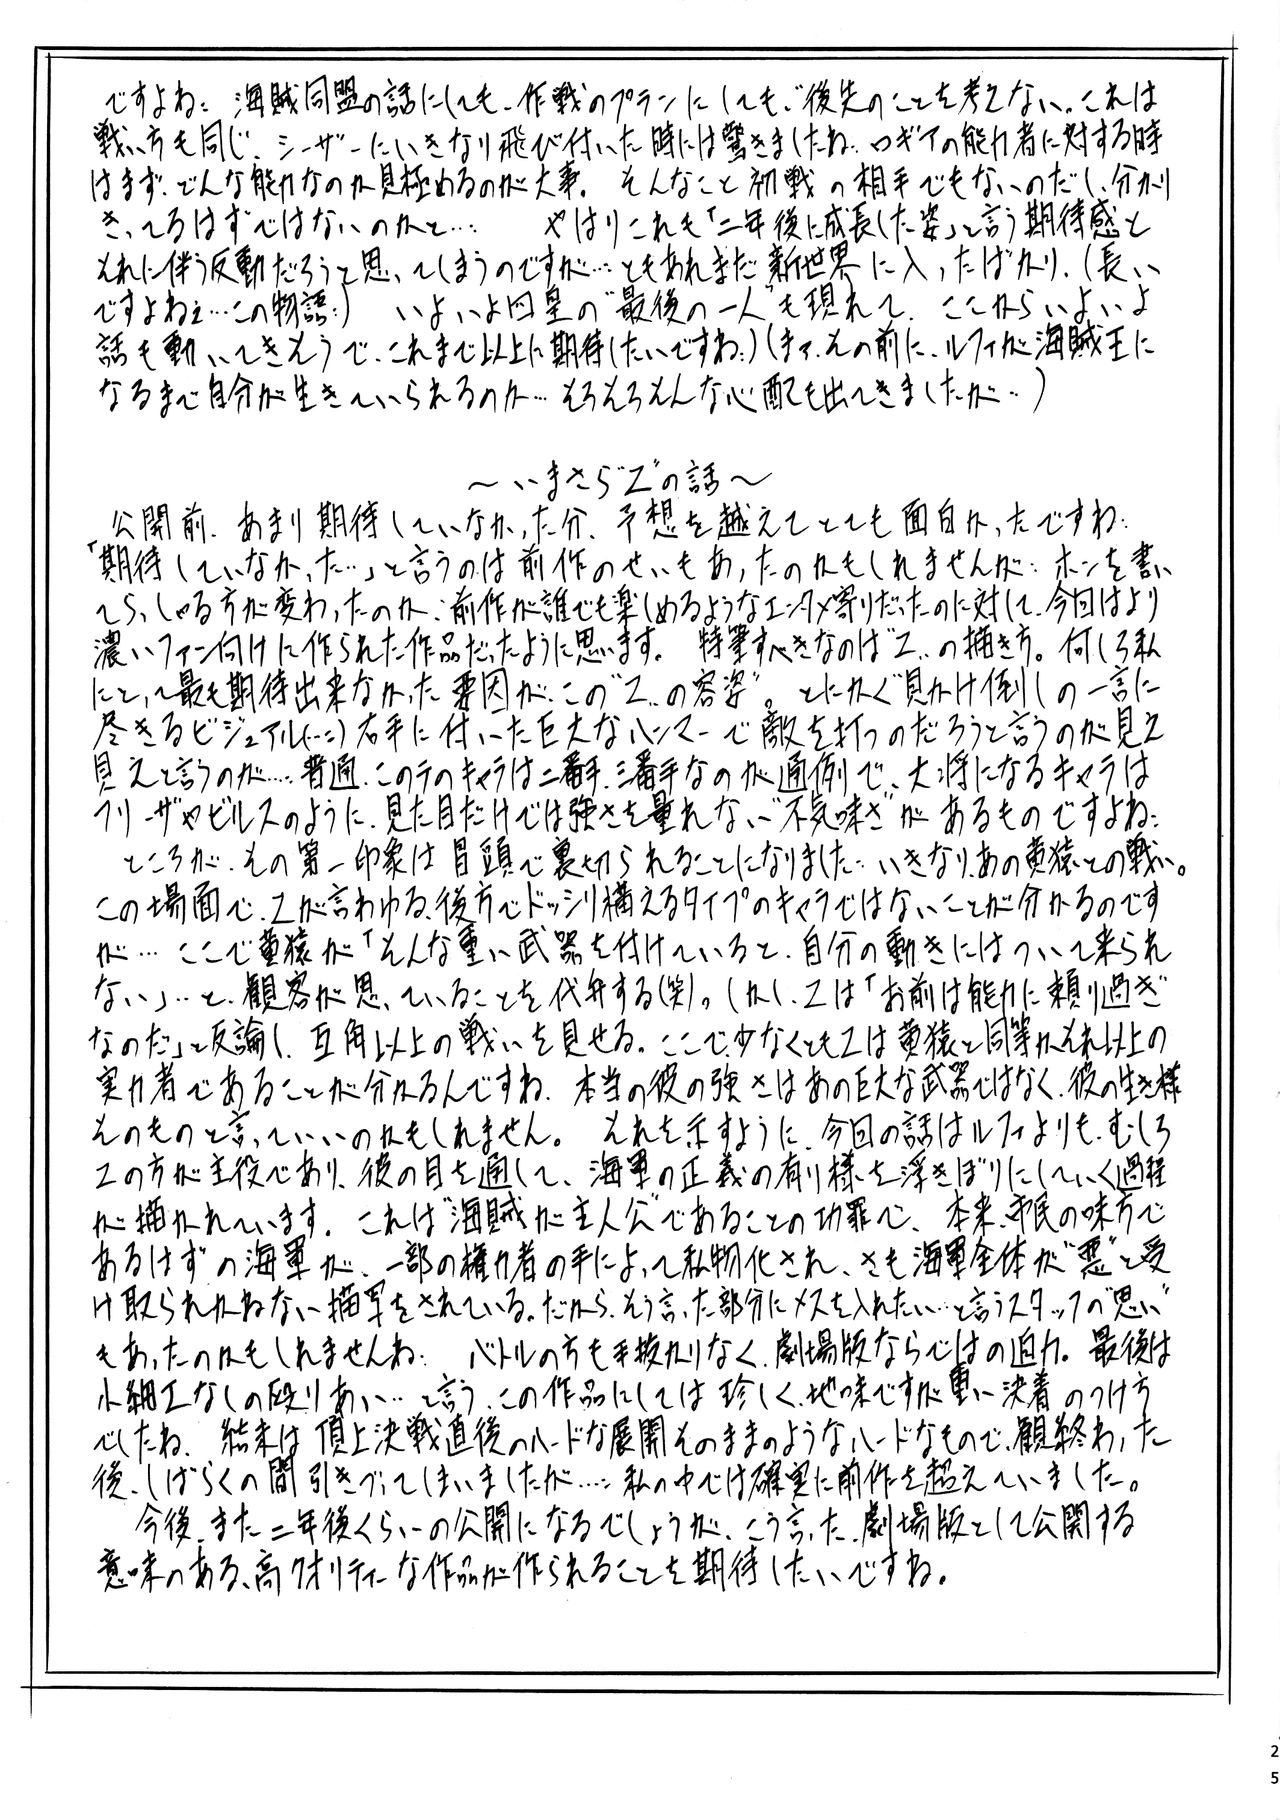 ですよね‥ 海賊同盟の話にしても、作戦のプランにしても、後先のことを考えない。これは
戦い方も同じ、シーザーにいきなり飛び付いた時には驚きましたね‥ ロギアの能力者に対する時
はまず、どんな能力なのか見極めるのが大事。 そんなこと初戦の相手でもないのだし、分かり
きってるはずではないのかと… やはりこれも「二年後に成長した姿」と言う期待感と
それに伴う反動だろうと思ってしまうのですが…ともあれまだ新世界に入ったばかり、(長い
ですよねェ…この物語‥) いよいよ四皇の“最後の一人”も現れて、ここからいよいよ
話も動いてきそうで、これまで以上に期待したいですね‥)(まァ、その前に、ルフィが海賊王に
なるまで自分が生きていられるのか…そろそろそんな心配も出てきましたが‥)
～いまさら“Z”の話～
公開前、あまり期待していなかった分、予想を越えてとても面白かったですね‥
「期待していなかった…」と言うのは前作のせいもあったのかもしれませんが‥ホンを書い
てらっしゃる方が変わったのか、前作が誰でも楽しめるようなエンタメ寄りだったのに対して、今回はより
濃いファン向けに作られた作品だったように思います。 特筆すべきなのは“Z”の描き方。何しろ私
にとって最も期待出来なかった要因が、この“Z”の容姿”。とにかく“見かけ倒しの一言に
尽きるビジュアル(…‥)右手に付いた巨大なハンマーで敵を打つのだろうと言うのが見え
見えと言うのが…‥普通、このテのキャラは二番手、三番手なのが通例で、大将になるキャラは
フリーザやビルスのように、見た目だけでは強さを量れない“不気味さ”があるものですよね‥
ところが、その第一印象は冒頭で裏切られることになりました‥いきなり、あの黄猿との戦い。
この場面で、Zが言わゆる、後方でドッシリ構えるタイプのキャラではないことが分かるのです
が… ここで黄猿が「そんな重い武器を付けていると、自分の動きにはついて来られ
ない」‥と、観客が思っていることを代弁する(笑)。しかし、Zは「お前は能力に頼り過ぎ
なのだ」と反論し、互角以上の戦いを見せる。ここで、少なくともZは黄猿と同等かそれ以上の
実力者であることが分かるんですね、本当の彼の強さはあの巨大な武器ではなく、彼の生き様
そのものと言っていいのかもしれません。 それを示すように、今回の話はルフィよりも、むしろ
Zの方が主役であり、彼の目を通して、海軍の正義の有り様を浮きぼりにしていく過程
が描かれています。これは“海賊が主人公”であることの功罪で、本来、市民の味方で
あるはずの海軍が、一部の権力者の手によって私物化され、さも海軍全体が“悪”と受
け取られかねない描写をされている。だから、そう言った部分にメスを入れたい…と言うスタッフの“思い”
もあったのかもしれませんね‥ バトルの方も手抜かりなく、劇場版ならではの迫力。最後は
小細工なしの殴りあい…と言う、この作品にしては珍しく、地味ですが重い決着のつけ方
でしたね、 結末は頂上決戦直後のハードな展開そのままのようなハードなもので、観終わった
後、しばらくの間引きづってしまいましたが…‥私の中では確実に前作を超えていました。
今後、また二年後くらいの公開になるでしょうが、こう言った、劇場版として公開する
意味のある、高クオリティーな作品が作られることを期待したいですね。
25